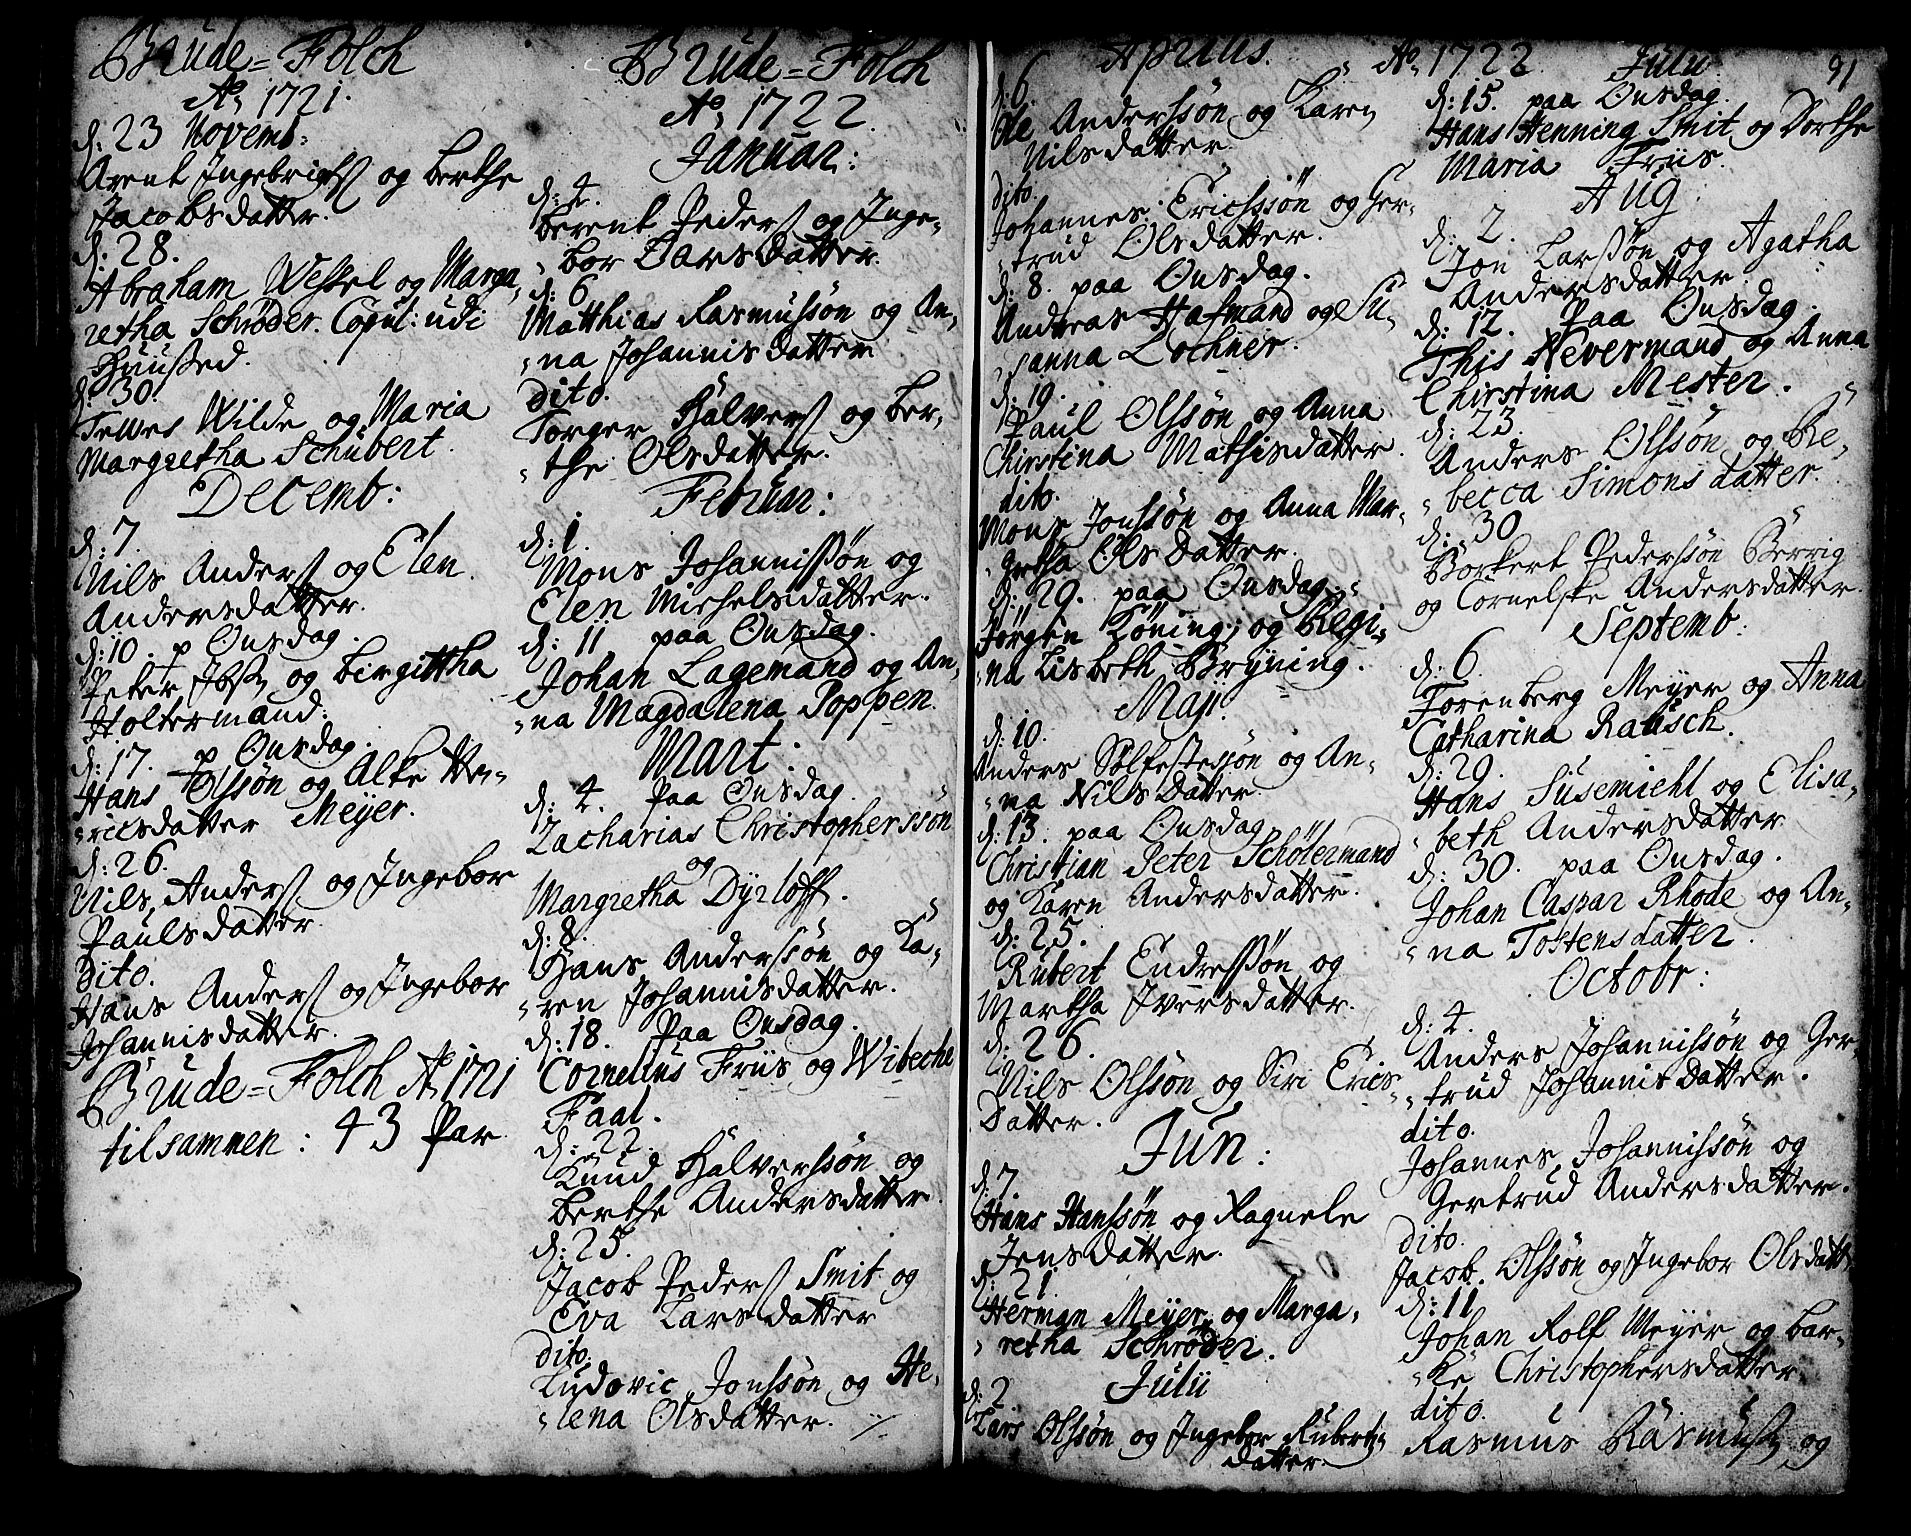 Brude=Folch
Ao 1721.
d: 23 Novemb:
Arent Ingebrigts og Berthe
Jacobsdatter.
d: 28.
Abraham Wessel og Marga,
retha Schrøder. Copul: udi
Huused.
d: 30.
Tewes Wilde og Maria
Margretha Schubert.
Decemb:
d: 7.
Nils Anders og Elen
Andersdatter.
d: 10. p Onsdag.
Peter og Birgittha
Holtermand.
d: 17. p Onsdag.
Hans Olssøn og Alke Hen-
"ricsdatter Meyer.
d: 26.
Nils Anders og Ingebor
Paulsdatter.
Dito.
Hans Anders og Ingebor
Johannisdatter.
Brude=Folch Ao 1721
tilsammen: 43 Par
Brude=Folch
Ao 1722.
Januar:
d: 4.
Berent Peders og Inge-
"bor Larsdatter.
d: 6
Matthias Rasmussøn og An,
"na Johannisdatter
dito.
Torger Halvers og Ber-
"the Olsdatter.
Februar:
d: 1.
Mons Johannissøn og
Elen Michelsdatter.
d: 11 paa Onsdag.
Johan Lagemand og An,
"na Magdalena Poppen.
Mart:
d: 4. paa Onsdag.
Zacharias Christopherssøn
og
Margretha Dyrloff.
d: 8.
Hans Anderssøn og Ka-
"ren Johannisdatter.
d: 18. paa Onsdag.
Cornelius Friis og Wibeche
Faal.
d: 22.
Knud Halverssøn og
Berthe Andersdatter.
d: 25.
Jacob Peders Smit og
Eva Larsdatter
dito.
Ludovic Jonssøn og He-
"lena Olsdatter.
Aprilis.
d: 6.
Ole Anderssøn og Karen
Nilsdatter.
dito.
Johannes Ericssøn og Ger-
"trud Olsdatter.
d: 8. paa Onsdag.
Andreas Hafmand og Su-
"sanna Lochner.
d: 19.
Paul Olssøn og Anna
Chirstina Mathisdatter.
dito.
Mons Jonssøn og Anna Mar-
"gretha Olsdatter.
d: 29. paa Onsdag.
Jørgen Køning, og Regi-
"na Lisbeth Bryning.
Maji.
d: 10.
Anders Solfestesøn og An-
"na Nilsdatter.
d: 13. paa Onsdag
Christian Peter Schølermand
og Karen Andersdatter.
d: 25.
Rubert Endressøn og
Martha Iversdatter.
d: 26.
Nils Olssøn og Siri Erics
Datter.
Jun:
d: 7.
Hans Hanssøn og Ragnele
Jensdatter.
d: 21.
Herman Meyer og Marga,
"retha Schrøder.
Julii
d: 2
Lars Olssøn og Ingebor Ruberts
datter.
Ao 1722 Julii 91
d: 15. paa Onsdag.
Hans Henning Smit og Dorthe
Maria Friis.
Aug:
d: 2.
Jon Larssøn og Agatha
Andersdatter.
d: 12. Paa Onsdag.
This Nevermand og Anna
Chirstina Mester.
d: 23.
Anders Olssøn og Re,
"becca Simonsdatter.
d: 30
Borkert Pederssøn Berrig
og Cornelske Andersdatter.
Septemb:
d: 6.
Forenberg Meyer og Anna
Catharina Rausch.
d: 29.
Hans Susemiehl og Elisa,
"beth Andersdatter.
d: 30. paa Onsdag.
Johan Caspar Rhode og An-
"na Tostensdatter.
Octobr:
d: 4.
Anders Johannissøn og Ger-
"trud Johannisdatter.
dito.
Johannes Johannissøn og
Gertrud Andersdatter.
dito.
Jacob Olssøn og Ingebor Olsdatt
d: 11
Johan Rolf Meyer og Bar-
"ke Christophersdatter.
dito.
Rasmus Rasmuss og